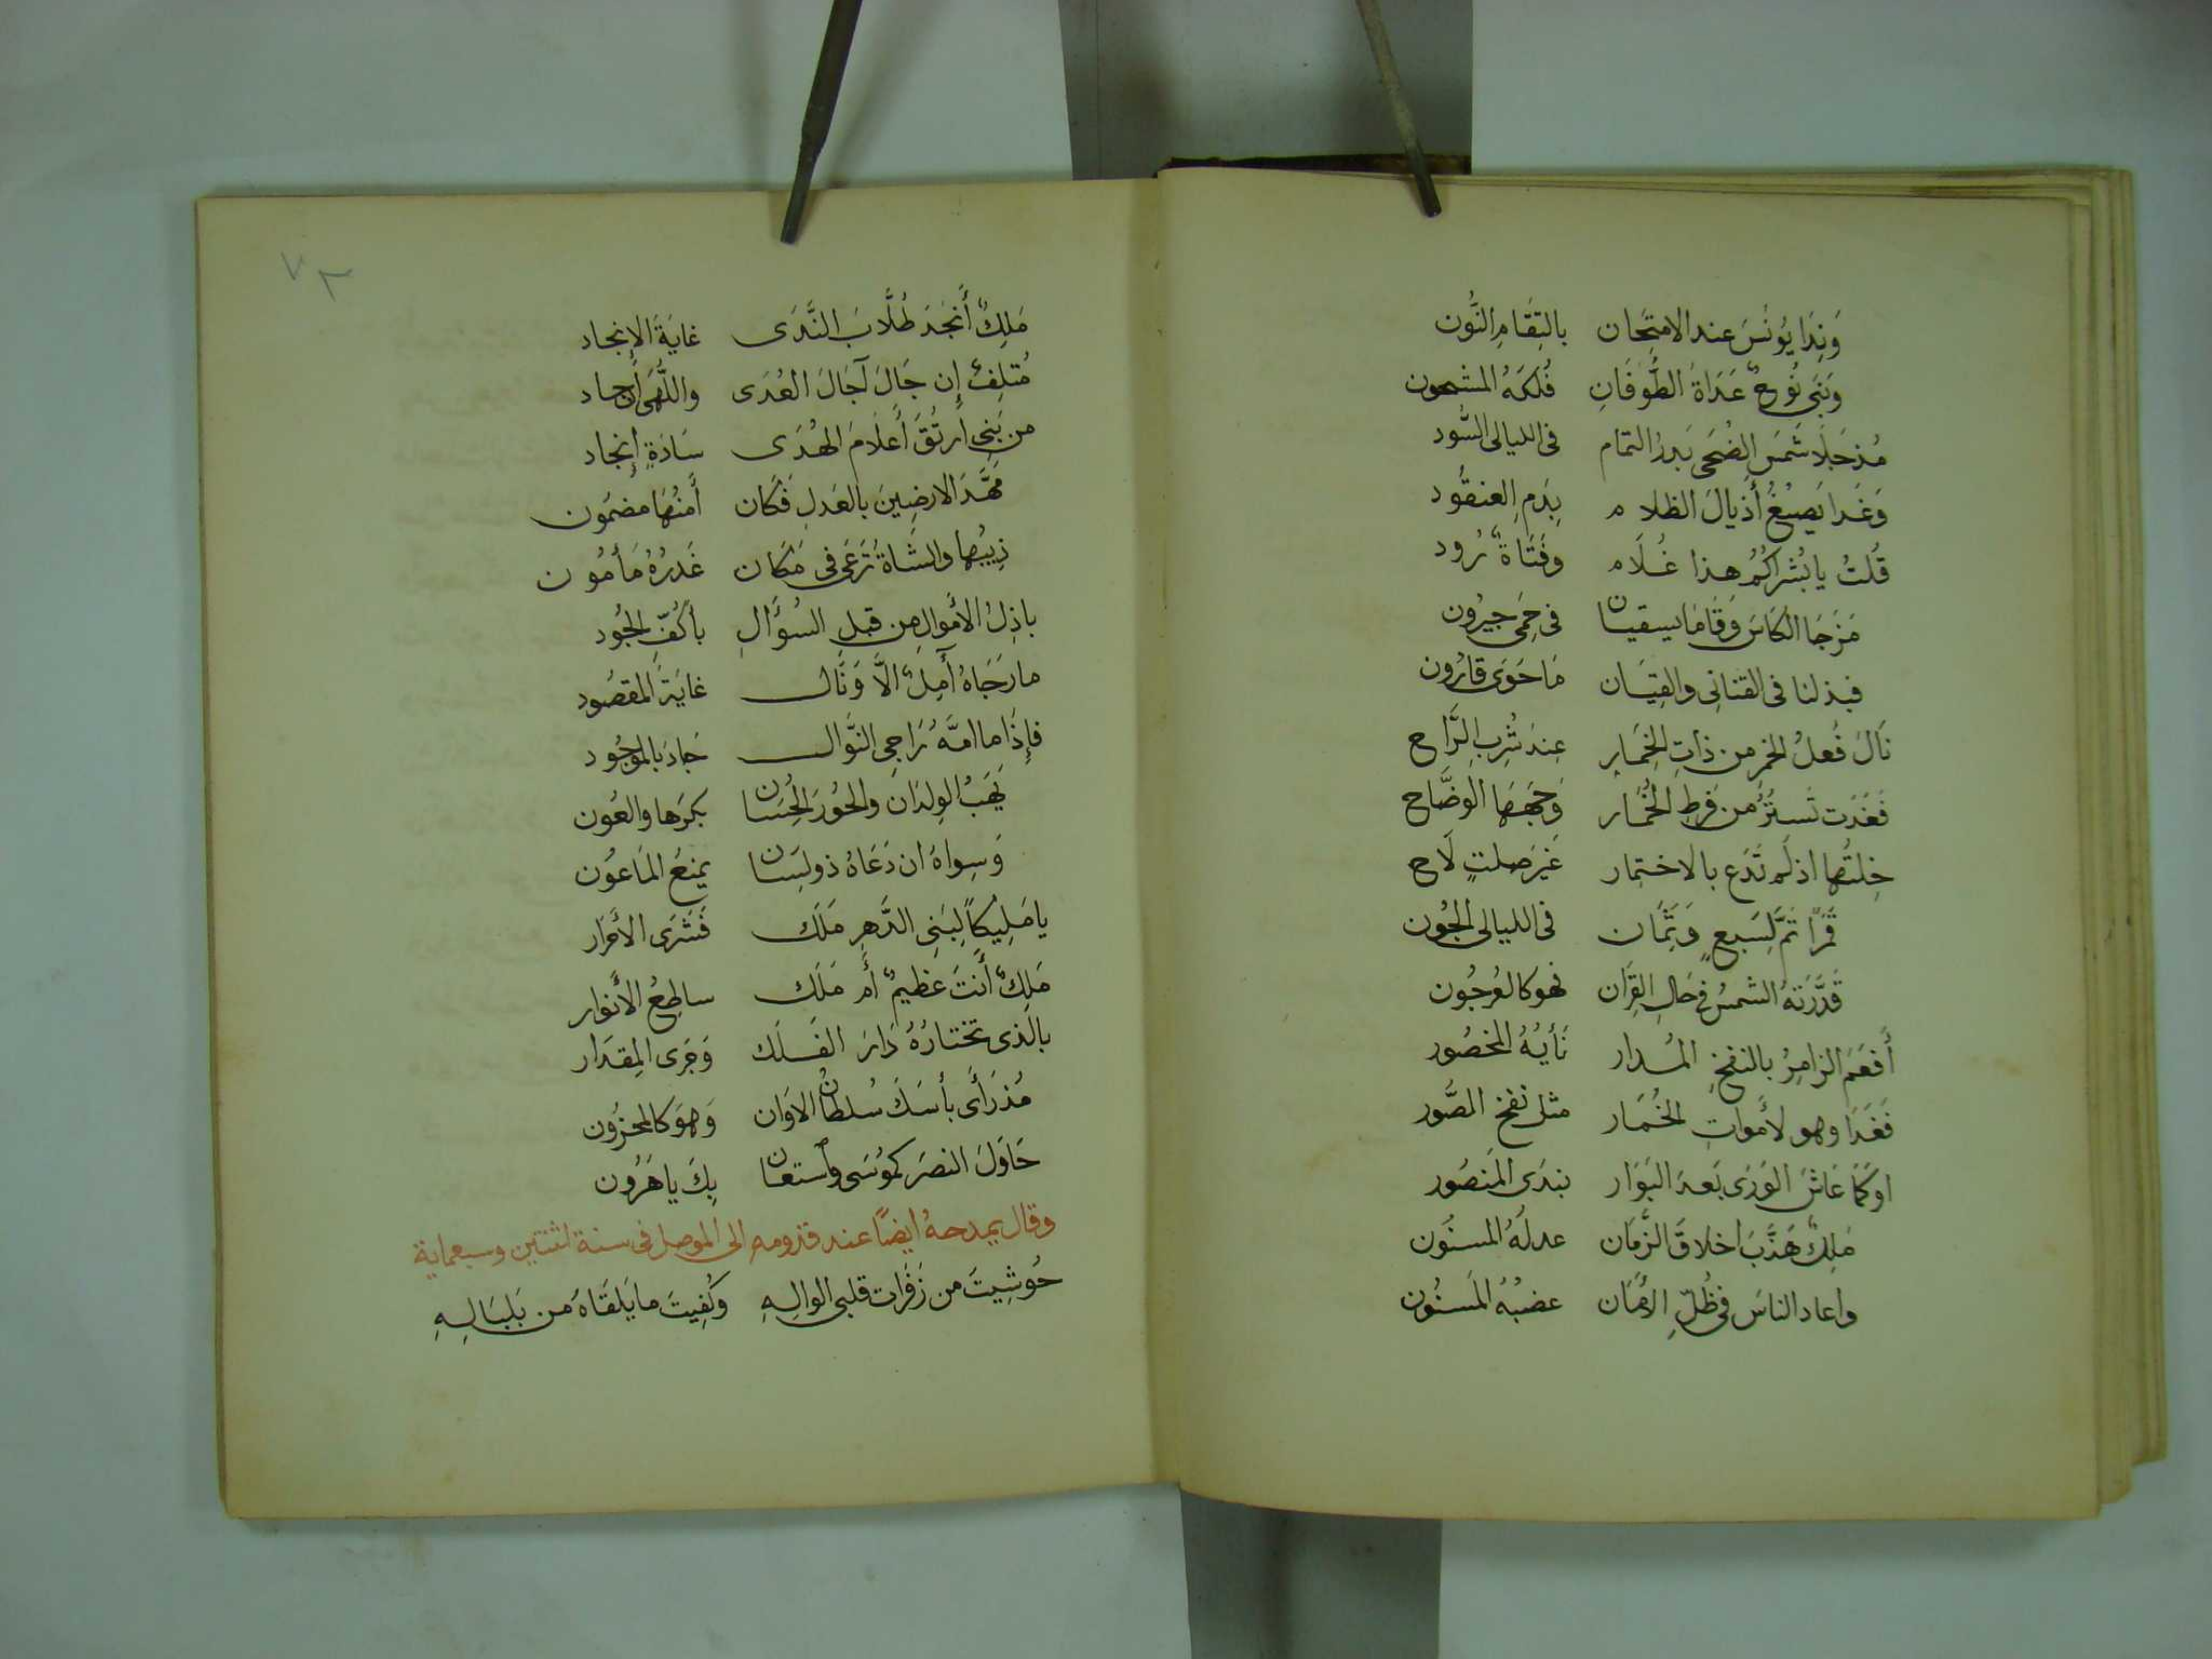 وَنِدَا يُونُسَ عند الامتِحَان بالتِقَامِ النُّون
وَبَنَى نُوحٌ غَدَاةَ الطُّوفَانِ فُلكَهُ المشحون
مُذ جَلَا شَمسَ الضُحَى بَدرُ التمام فى الليالى السُّود
وَغَدَا يَصبغُ أَذيالَ الظلام بِدَمِ العنقُود
قُلتُ يا بُشراكُمُ هذا غُلَام وفَتَاةٌ رُود
مَزَجَا الكَاسَ وَقَامَا يسقيان فى حِمَى جيرُون
فبذلنا فى القنانى والقِيَان مَا حَوَى قارُون
نَالَ فُعلُ الخمرِ من ذاتِ الخِمَار عِندَ شُربِ الرَّاح
فَغَدَت تَستُرُ من فَرطِ الخُمَار وَجهَهَا الوضَّاح
خِلتُها اذ لم تَدَع بالاختمار غَيرَ صلتٍ لَاح
قَمَراً تمَّ لِسَبعٍ وَثَمَان فى الليالى الجُون
قَدَّرَتهُ الشمسُ فى حَالِ القِرَان فهو كالعُرجُون
أَفعَمَ الزامِرُ بالنفخِ المُدار نَأيُهُ المخصُور
فَغَدَا وهو لأَمواتِ الخُمَار مثل نفخ الصُّور
او كَمَا عَاشَ الوَرَى بَعدَ البَوَار بندَى المَنصُور
مَلِكٌ هَذَّبَ اخلاقَ الزَّمَان عدلُهُ المسنُون
واعاد الناسَ فى ظُلِّ الأَمَان عضبُهُ المَسنُون
٧٣
مَلِكٌ أَنجَدَ طُلَّابَ النَّدَى غايَةَ الإِنجاد
مُتلِفٌ إِن جَالَ آجَالَ العُدَى واللُّهَى إِن جاد
من بَنِى أُرتُقَ أَعلَامَ الهُدَى سَادَةٍ إِنجاد
مَهَّدَ الارضِينَ بالعَدلِ فَكَان أَمنُهَا مضمُون
ذِيبُها والشَاةُ تَرعَى فى مَكَان غَدرُهُ مَأمُون
باذِلُ الأَموَالِ مِن قبلِ السُؤَالِ بأَكُفِّ الجُود
ما رَجَاهُ آمِلٌ الَّا وَنَال غايَةَ المقصُود
فإِذَا ما امَّهُ رَاجِى النَّوال جَادَ بالموجُود
يَهَبُ الوِلدَان والحُورَ الحِسَان بكرَها والعُون
وَسِواهُ ان دَعَاهُ ذو لِسَان يمنعُ المَاعُون
يا مَلِيكاً لِبَنِى الدَّهرِ مَلَك فَشَرَى الأَحرَار
مَلِكٌ أَنتَ عَظيمٌ أَم مَلَك ساطِعُ الأَنوار
بالَّذى تَختارُهُ دَارَ الفَلَك وَجَرَى المِقدَار
مُذ رَأَى بأسَكَ سُلطَانُ الاوَان وَهوَ كالمحزُون
حَاوَلَ النصرَ كَمُوسَى وٱستعَان بِكَ يا هَرُون
وقال يمدحهُ ايضاً عند قدومهِ الى الموصل فى سنة اثنتين وسبعماية
حُوشِيتَ من زَفَرات قلبى الوالِهِ وكُفِيتَ ما يَلقَاهُ من بَلبَالِهِ